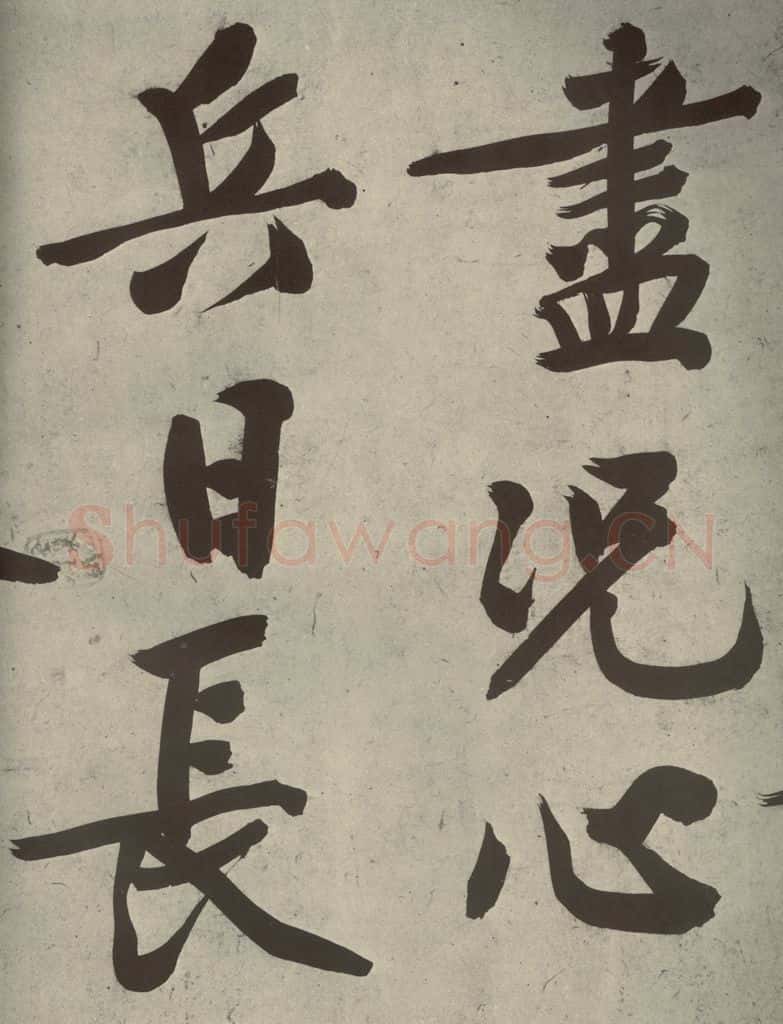 盡况心
兵日長
Shufawang.CN